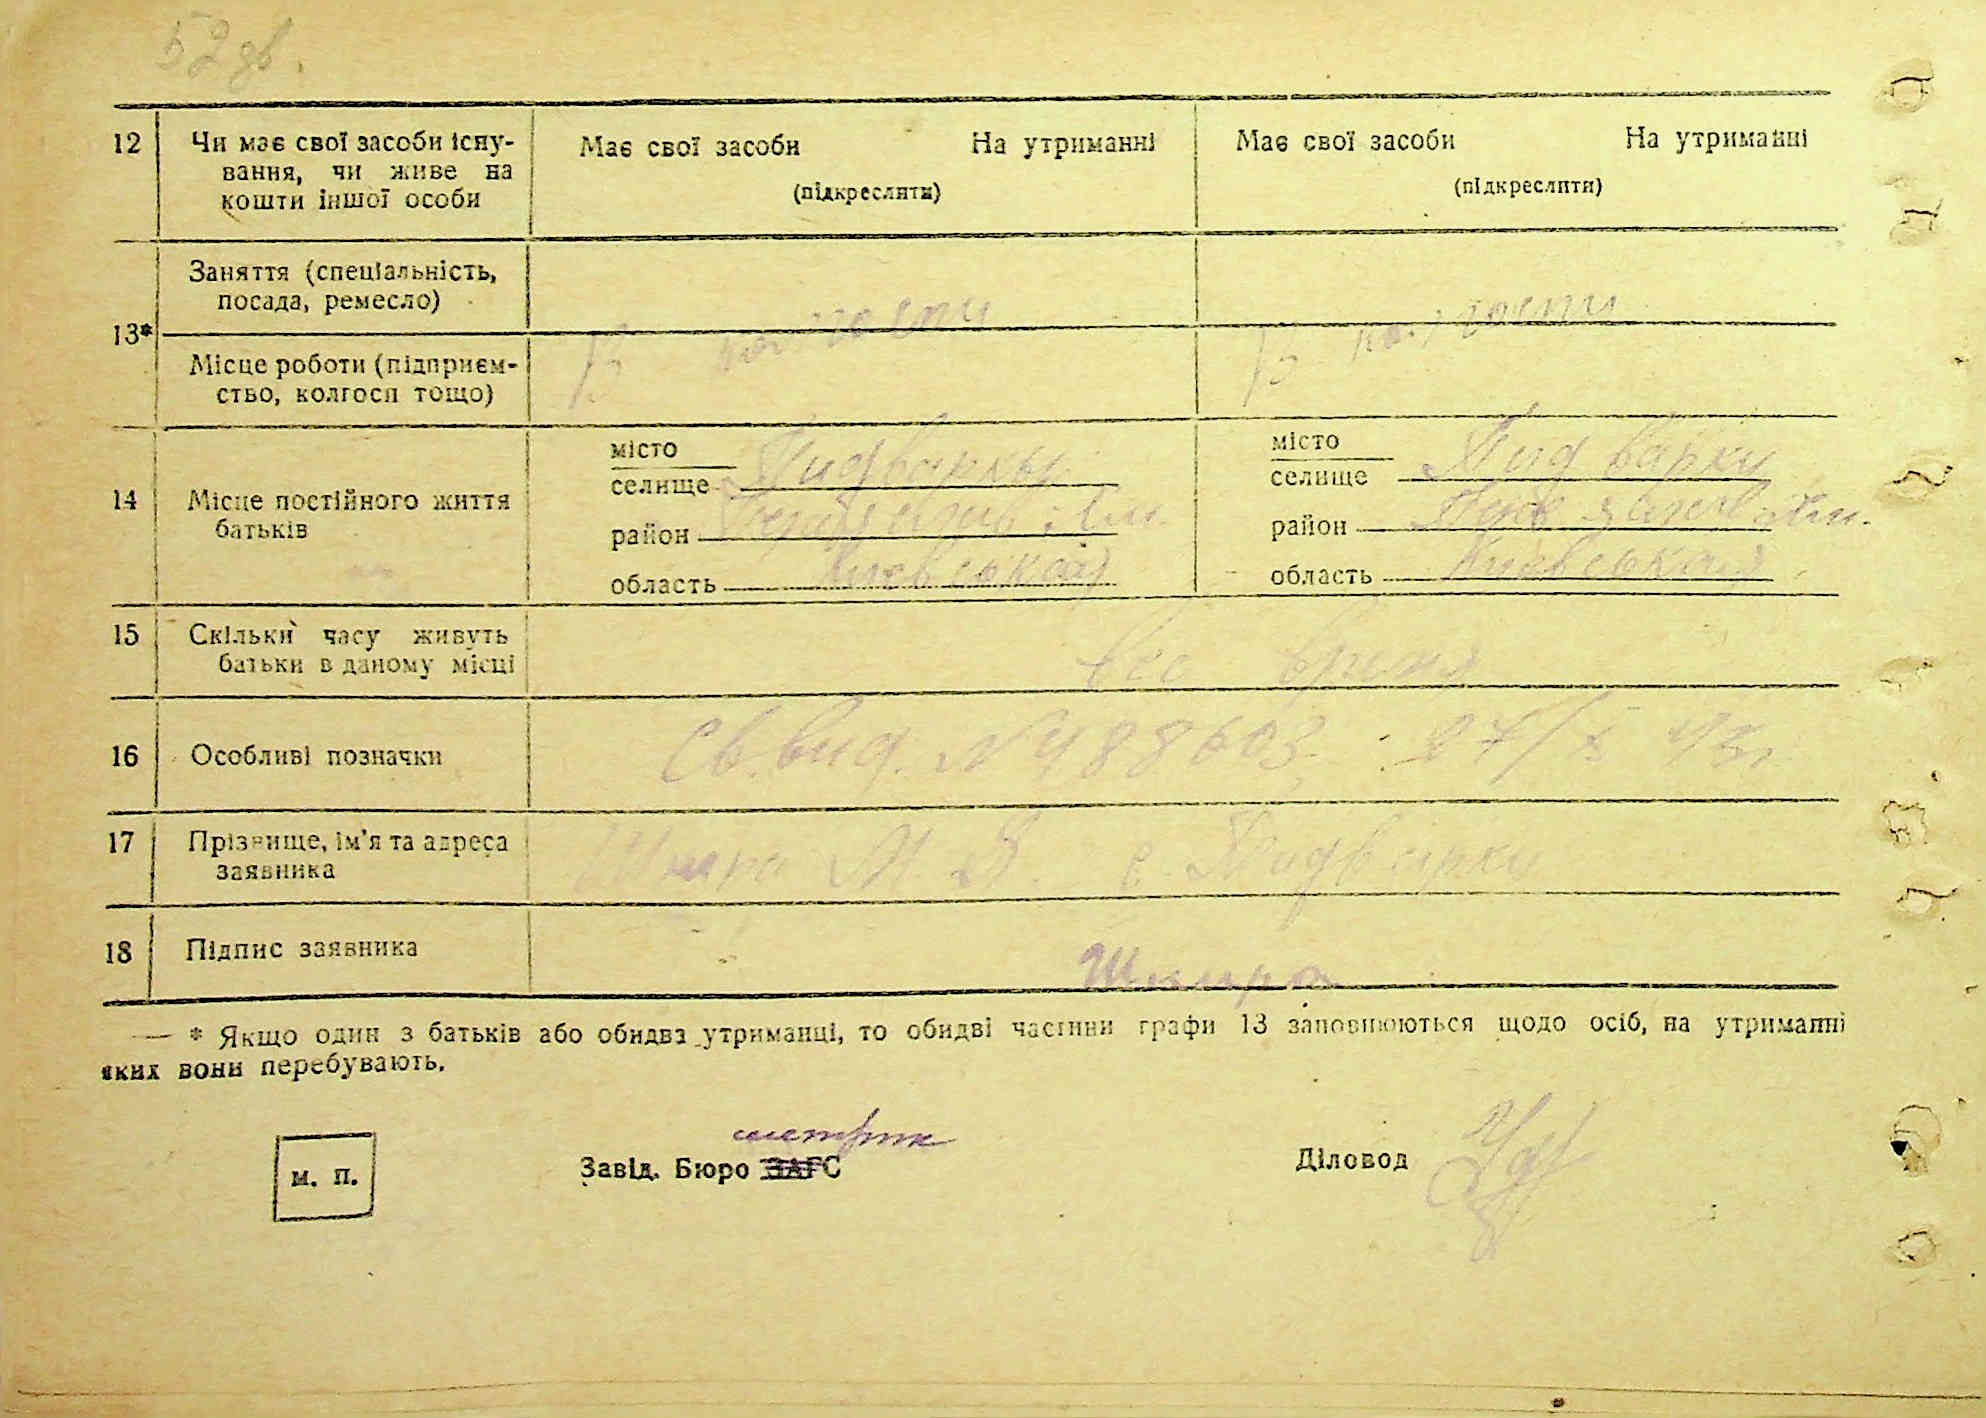 52 зв.
12 Чи має свої засоби існу- Має свої засоби На утриманні Має свої засоби На утриманні
вання, чи живе на (підкреслити) (підкреслити)
кошти іншої особи
Заняття (спеціальність,
посада, ремесло)
13*
Місце роботи (підприєм-
ство, колгосп тощо)
місто Пидварки місто Пид варки
селище селище
14 Місце постійного життя
батьків район район
область Киевськая область Киевськая
15 Скільки часу живуть
батьки в даному місці
16 Особливі позначки Св. вид. N 488603 27/X 43 г.
17 Прізвище, ім'я та адреса
заявника с. Пидварки
18 Підпис заявника
— * Якщо один з батьків або обидва утриманці, то обидві частини графи 13 заповнюються щодо осіб, на утриманні
яких вони перебувають.
метрик
м. п. Завід. Бюро ЗАГС Діловод